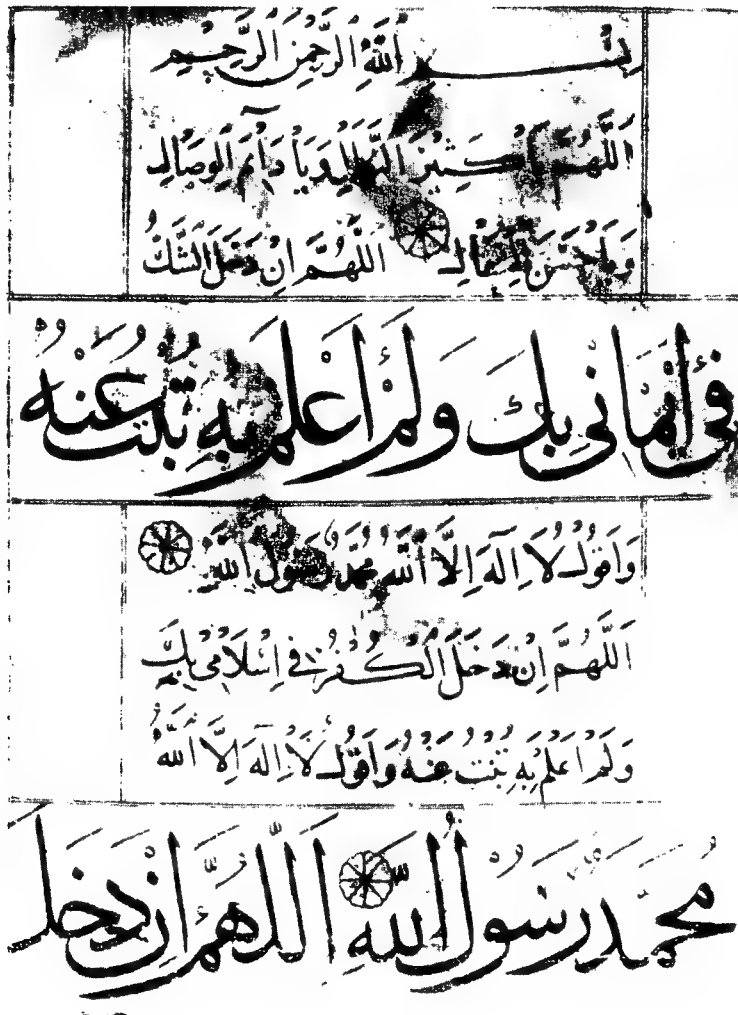 بِسْمِ اللّٰهِ الرَّحْمٰنِ الرَّحِيمِ
اَللّٰهُمَّ يَا كَثِيرَ النَّوَالِ وَيَا دَآئِمَ الْوِصَالِ
وَيَا حَسَنَ الْفِعَالِ اَللّٰهُمَّ اِنْ دَخَلَ الشَّكُّ
فِي اِيمَانِي بِكَ وَلَمْ اَعْلَمْ بِهِ تُبْتُ عَنْهُ
وَاَقُولُ لَا اِلٰهَ اِلَّا اللّٰهُ مُحَمَّدٌ رَسُولُ اللّٰهِ
اَللّٰهُمَّ اِنْ دَخَلَ الْكُفْرُ فِي اِسْلَامِي بِكَ
وَلَمْ اَعْلَمْ بِهِ تُبْتُ عَنْهُ وَاَقُولُ لَا اِلٰهَ اِلَّا اللّٰهُ
مُحَمَّدٌ رَسُولُ اللّٰهِ اَللّٰهُمَّ اِنْ دَخَلَ